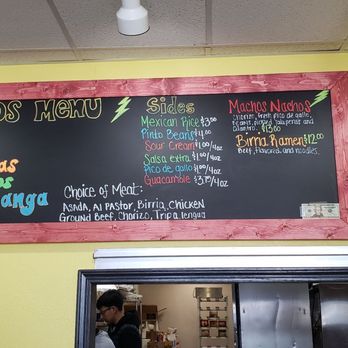 OS MENU
as
os
anga
Sides
Mexican Rice $3.00
Pinto Beans $1.00
Sour Cream $1.00/4oz
Salsa extra $1.00/4oz
Pico de gallo $1.00/4oz
Guacamole $3.75/4oz
Choice of Meat:
Asada, Al Pastor, Birria, Chicken
Ground Beef, Chorizo, Tripa lengua
Machos Nachos
fresh Pico de gallo,
Jalapeños and
$13.00
Birria Ramen $12.00
Beef, flavored, and noodles.